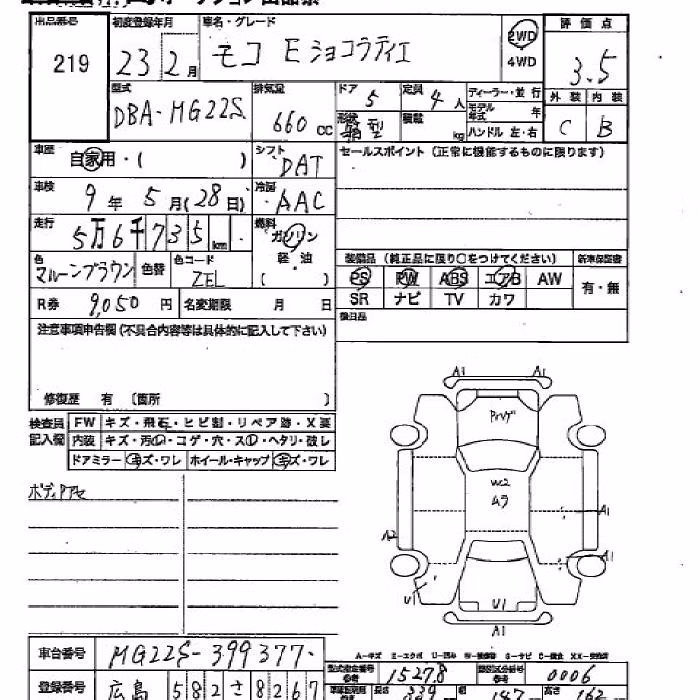 出品番号 初度登録年月 車名・グレード 評価点
219 23 2月 モコ Eショコラティエ 2WD 4WD 3.5
型式 排気量 ドア 定員 ディーラー・並行 外装 内装
DBA-MG22S 660cc 5 4人 モデル年式 年 C B
形状 箱型 積載 kg ハンドル 左・右
車歴 自家用・( ) シフト DAT セールスポイント(正常に機能するものに限ります)
車検 9年5月(28日) 冷房 AAC
走行 5万6千735km 燃料 ガソリン
軽・油
( )
色 マルーンブラウン 色替 色コード ZEL
装備品(純正品に限り○をつけてください) 新車保証書
PS PW ABS エアB AW 有・無
SR ナビ TV カワ
R券 9,050円 名変期限 月 日
後日品
注意事項申告欄(不具合内容等は具体的に記入して下さい)
修復歴 有 〔箇所 〕
検査員記入欄 FW キズ・飛石・ヒビ割・リペア跡・X要
内装 キズ・汚レ・コゲ・穴・スレ・ヘタリ・破レ
ドアミラー キズ・ワレ ホイール・キャップ キズ・ワレ
ボディアセ
A1 A1
W2
ムラ
A1
A2
A1
U1
U1
A1
車台番号 MG22S-399377
A-キズ E-エクボ U-凹み
型式指定番号 15278 類別区分番号 0006
登録番号 広島 582 さ 8267
長さ 339 幅 147 高さ 162